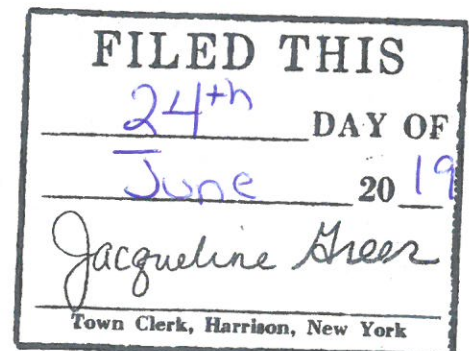 FILED THIS
24th DAY OF
June 20 19
Jacqueline Greer
Town Clerk, Harrison, New York